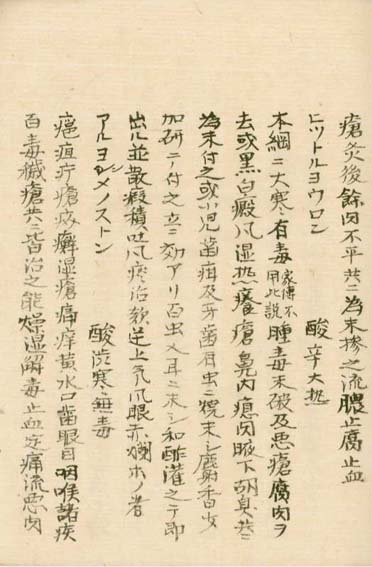 瘡灸後餘肉不平共ニ為末摻之流膿止腐止血
ヒットルヨウロン　酸辛大熱
本綱ニ大寒有毒家傳不用此說腫毒未破及悪瘡腐肉ヲ
去或黒白癜風湿熱癢瘡鼻内瘜肉腋下胡臭共ニ
為末付之或小児歯疳及牙歯有虫ニ焼末シ麝香少
加研テ付之立ニ効アリ百虫入耳ニ末シ和酢灌之テ即
出ル並散癥積吐風痰治欬逆上気風眼赤爛ホノ者
アルヨシメノストン　酸渋寒無毒
疤疽疔瘡疥癬湿瘡痛痒黄水口歯眼目咽喉諸疾
百毒蝕瘡共ニ皆治之能燥湿解毒止血定痛流悪肉